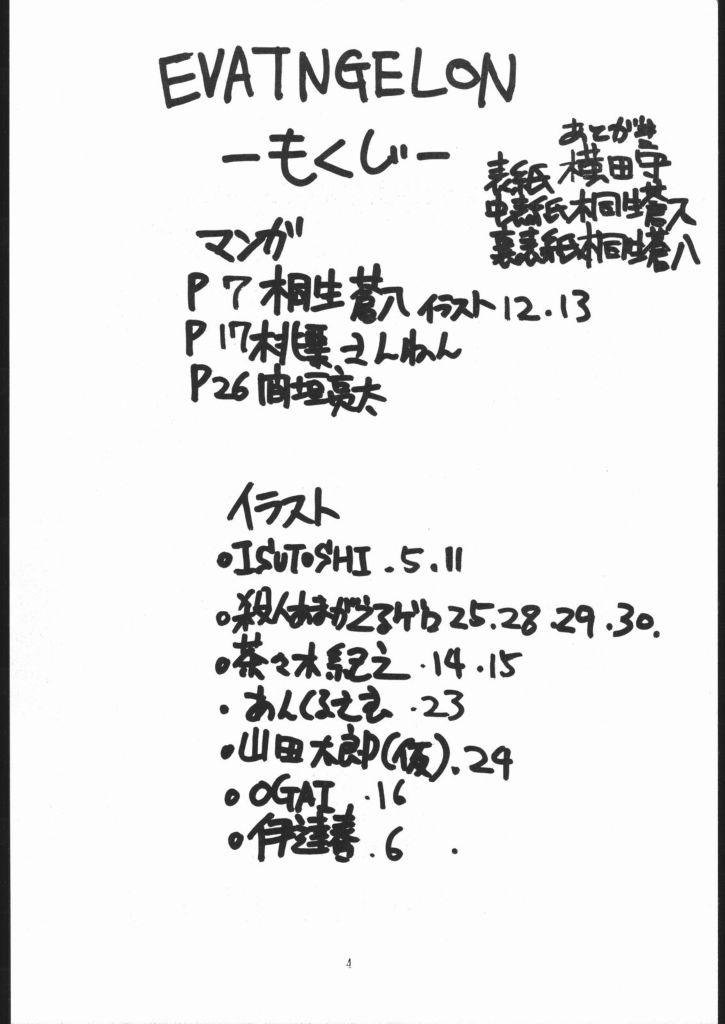 EVATNGELON
ーもくじー
あとがき
横田守
表紙
中表紙 桐生蒼ス
裏表紙 桐生蒼八
マンガ
P7 桐生蒼八 イラスト12.13
P17 桃栗さんねん
P26 間垣亮太
イラスト
・ISUTOSHI.5.11
・殺人あまがえるゲロ25.28.29.30.
・茶々木紀之.14.15
・あんくるさむ.23
・山田太郎(仮).24
・OGAI.16
・伊達 .6
4